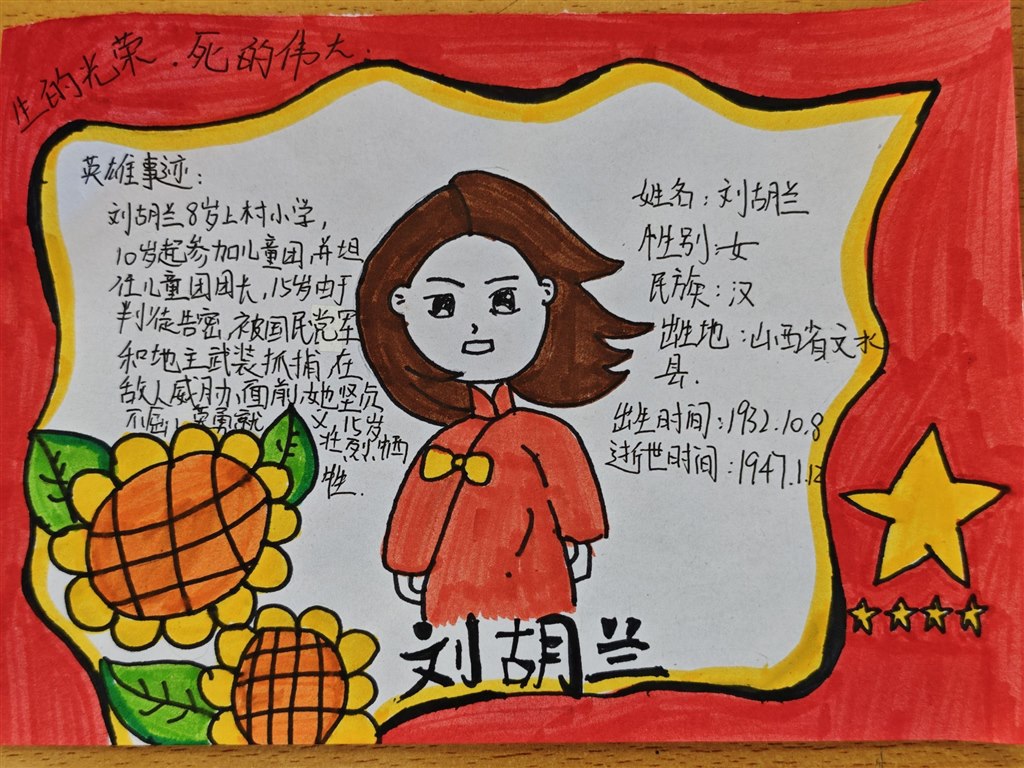 生的光荣.死的伟大.
英雄事迹:
刘胡兰8岁上村小学,
10岁起参加儿童团,并坦
任儿童团团长,15岁由于
判徒告密,被国民党军
和地主武装抓捕,在
敌人威胁面前,她坚贞
不屈,英勇就义,15岁
壮烈牺
牲.
姓名:刘胡兰
性别:女
民族:汉
出生地:山西省文水
县.
出生时间:1932.10.8
逝世时间:1947.1.12
刘胡兰